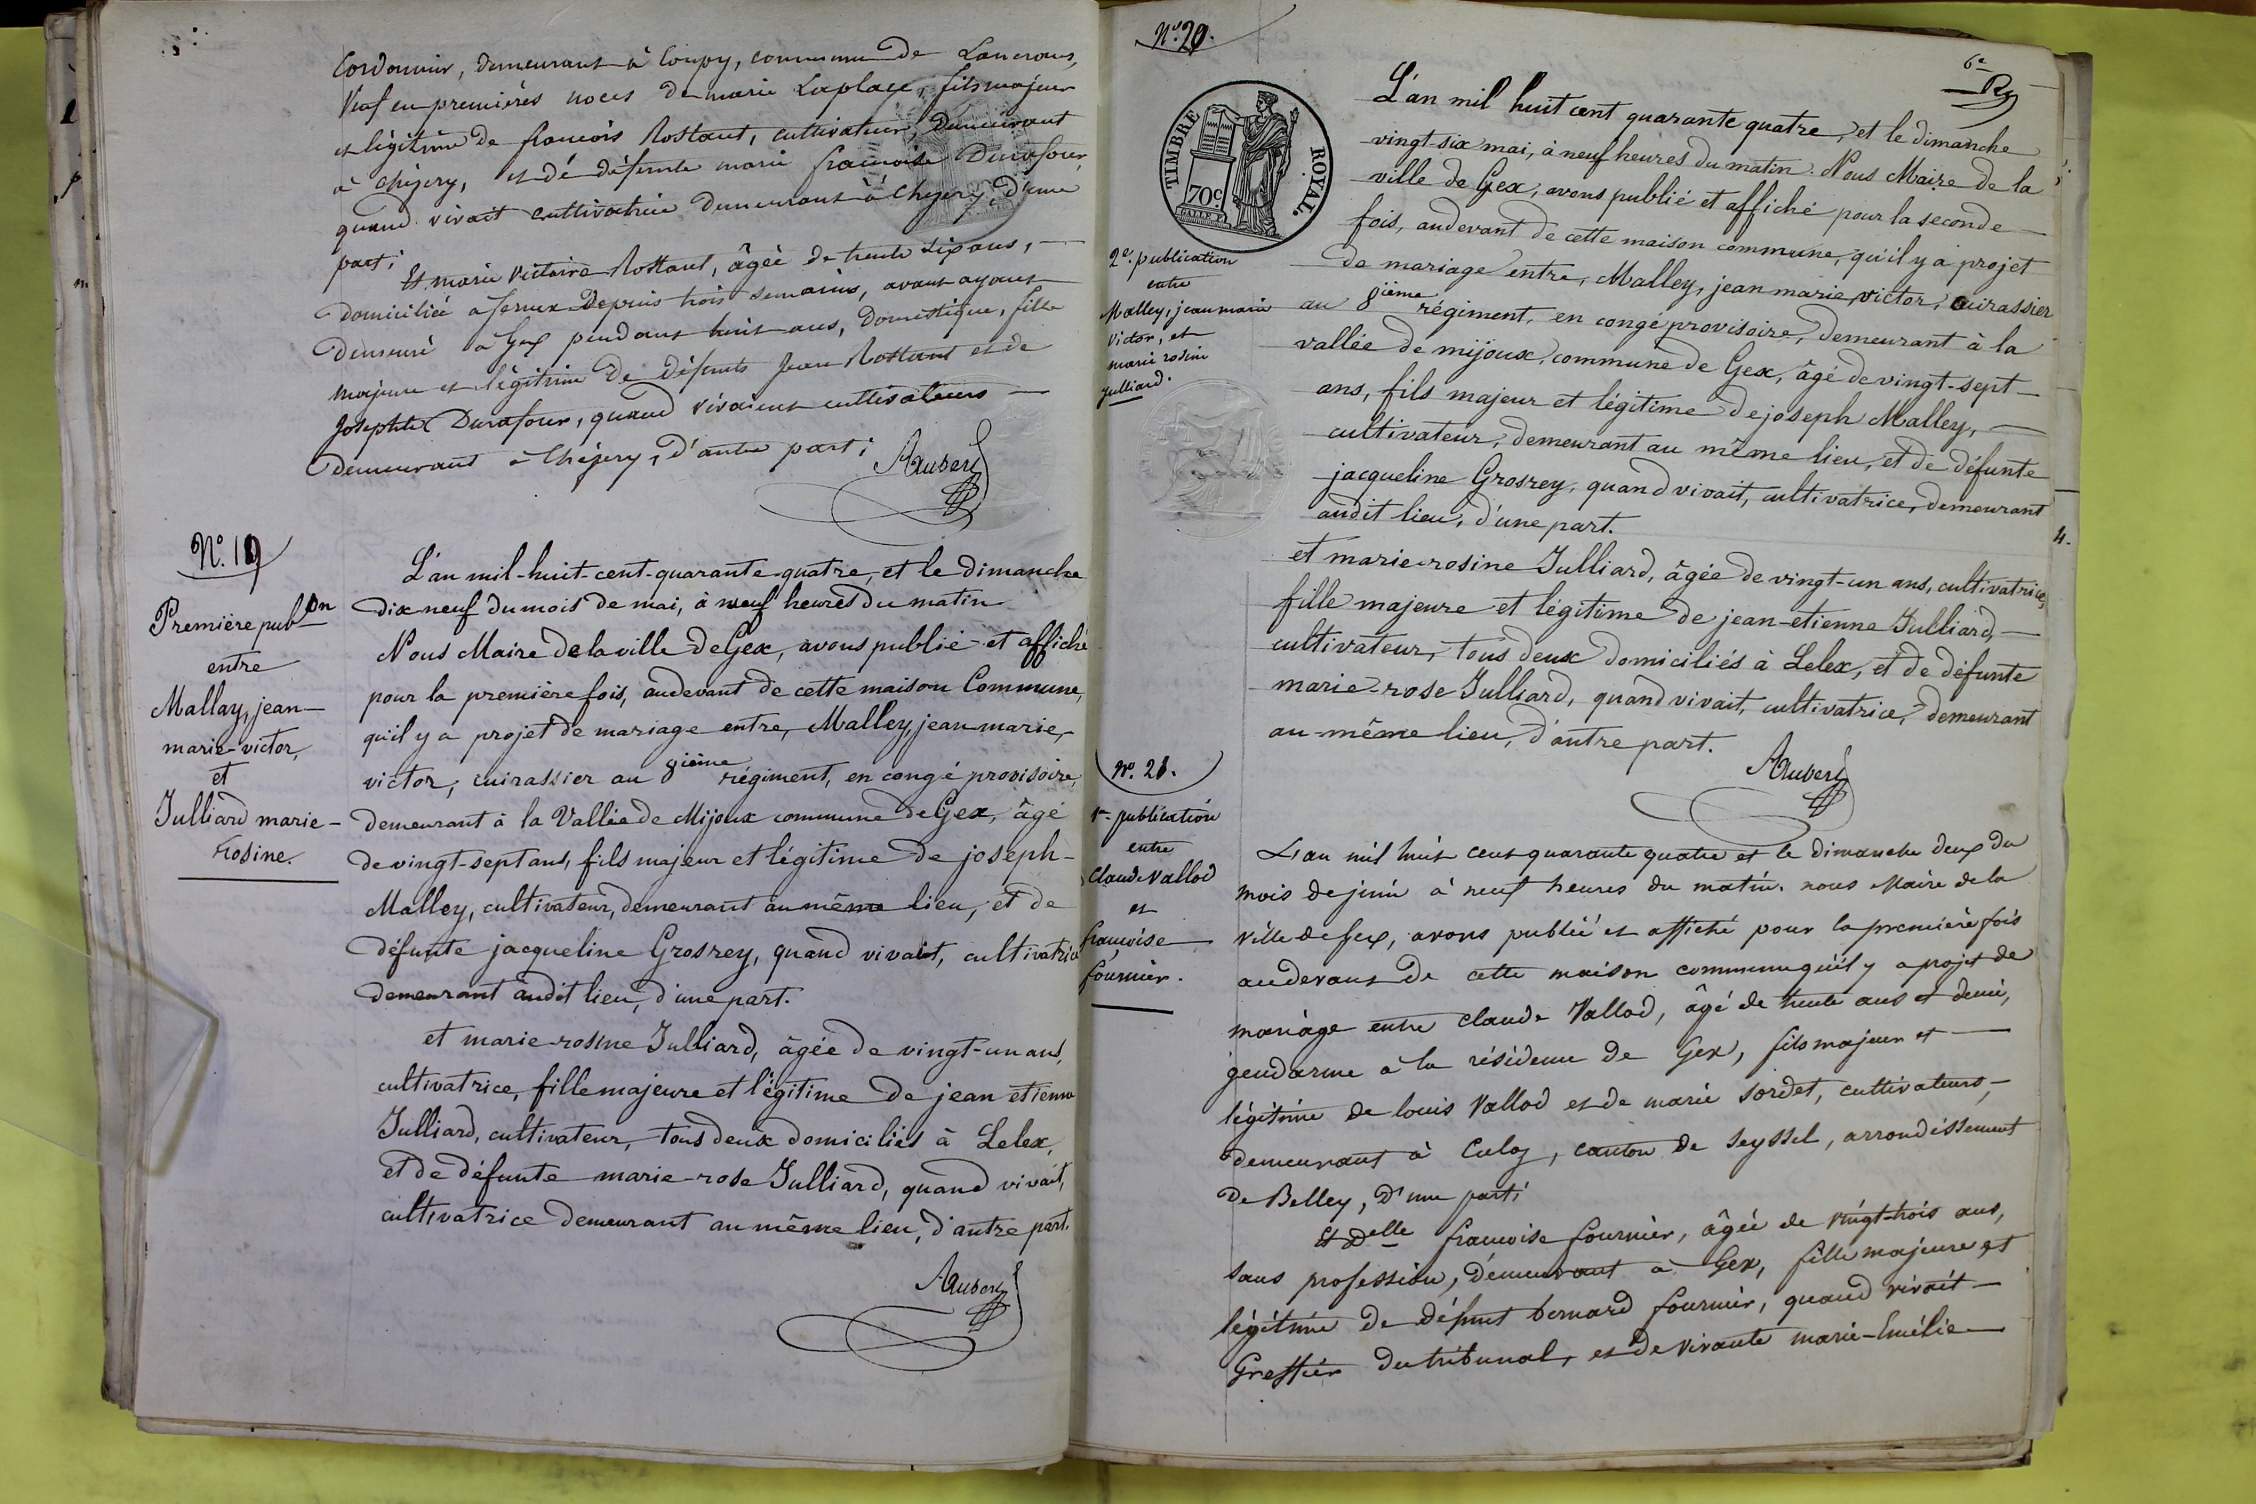 Cordonnier, demeurant à Coupy, commune de Lancrans,
Veuf en premières noces de marie Laplace, fils majeur
et légitime de francois Rostant, cultivateur, demeurant
à Chézery, et dé défunte marie francoise Durafour,
quand vivait cultivatrice demeurant à Chézery, d'une
part;
Et marie Victoire Rostant, âgée de trente six ans, —
domiciliée à fernex depuis trois semaines, avant ayant
demeuré à Gex pendant huit ans, domestique, fille
majeure et légitime de défunts Jean Rostant et de
Josephte Durafour, quand vivaient cultivateurs —
demeurant à Chézery, d'autre part;
Nº. 19
Première pubon
entre
Mallay, jean-
marie-victor,
et
Julliard marie-
rosine.
L'an mil-huit-cent-quarante-quatre, et le dimanche
dix neuf du mois de mai, à neuf heures du matin
Nous Maire de la ville de Gex, avons publié et affiché
pour la première fois, audevant de cette maison Commune,
qu'il y a projet de mariage entre, Malley, jean marie,
victor, cuirassier au 8ième régiment, en congé provisoire,
demeurant à la Vallée de Mijoux commune de Gex, âgé
de vingt-sept ans, fils majeur et légitime de joseph-
Malley, cultivateur, demeurant au même lieu, et de
défunte jacqueline Grosrey, quand vivait, cultivatrice
demeurant audit lieu, d'une part.
et marie-rosine Julliard, âgée de vingt-un ans,
cultivatrice, fille majeure et légitime de jean etienne
Julliard, cultivateur, tous deux domiciliés à Lelex,
et de défunte marie-rose Julliard, quand vivait,
cultivatrice demeurant au même lieu, d'autre part.
Nº. 20.
6e
TIMBRE ROYAL.
70c.
L'an mil huit cent quarante quatre, et le dimanche
vingt-six mai, à neuf heures du matin. Nous Maire de la
ville de Gex, avons publié et affiché pour la seconde —
fois, audevant de cette maison commune, qu'il y a projet
de mariage entre, Malley, jean marie victor, cuirassier
au 8ième régiment, en congé provisoire, demeurant à la
vallée de mijoux, commune de Gex, âgé de vingt-sept —
ans, fils majeur et légitime de joseph Malley, —
cultivateur, demeurant au même lieu, et de défunte
jacqueline Grosrey, quand vivait, cultivatrice, demeurant
audit lieu, d'une part.
et marie-rosine Julliard, âgée de vingt-un ans, cultivatrice,
fille majeure et légitime de jean-etienne Julliard, —
cultivateur, tous deux domiciliés à Lelex, et de défunte
marie-rose Julliard, quand vivait, cultivatrice, demeurant
au-même lieu, d'autre part.
2e. publication
entre
Malley, jean marie
Victor, et
marie rosine
julliard.
4.
Nº. 21.
1re publication
entre
Claude Vallod
et
francoise
fournier.
L'an mil huit cent quarante quatre et le dimanche deux du
mois de juin à neuf heures du matin. nous Maire de la
ville de Gex, avons publié et affiché pour la première fois
audevant de cette maison commune qu'il y a projet de
mariage entre Claude Vallod, âgé de trente ans et demi,
gendarme à la résidence de Gex, fils majeur et —
légitime de louis Vallod et de marie Sordet, cultivateurs, —
demeurant à Culoz, canton de Seyssel, arrondissement
de Belley, d'une part;
Et Delle francoise fournier, âgée de vingt-trois ans,
sans profession, demeurant à Gex, fille majeure et
légitime de défunt bernard fournier, quand vivait —
Greffier du tribunal, et de vivante marie-Emélie —